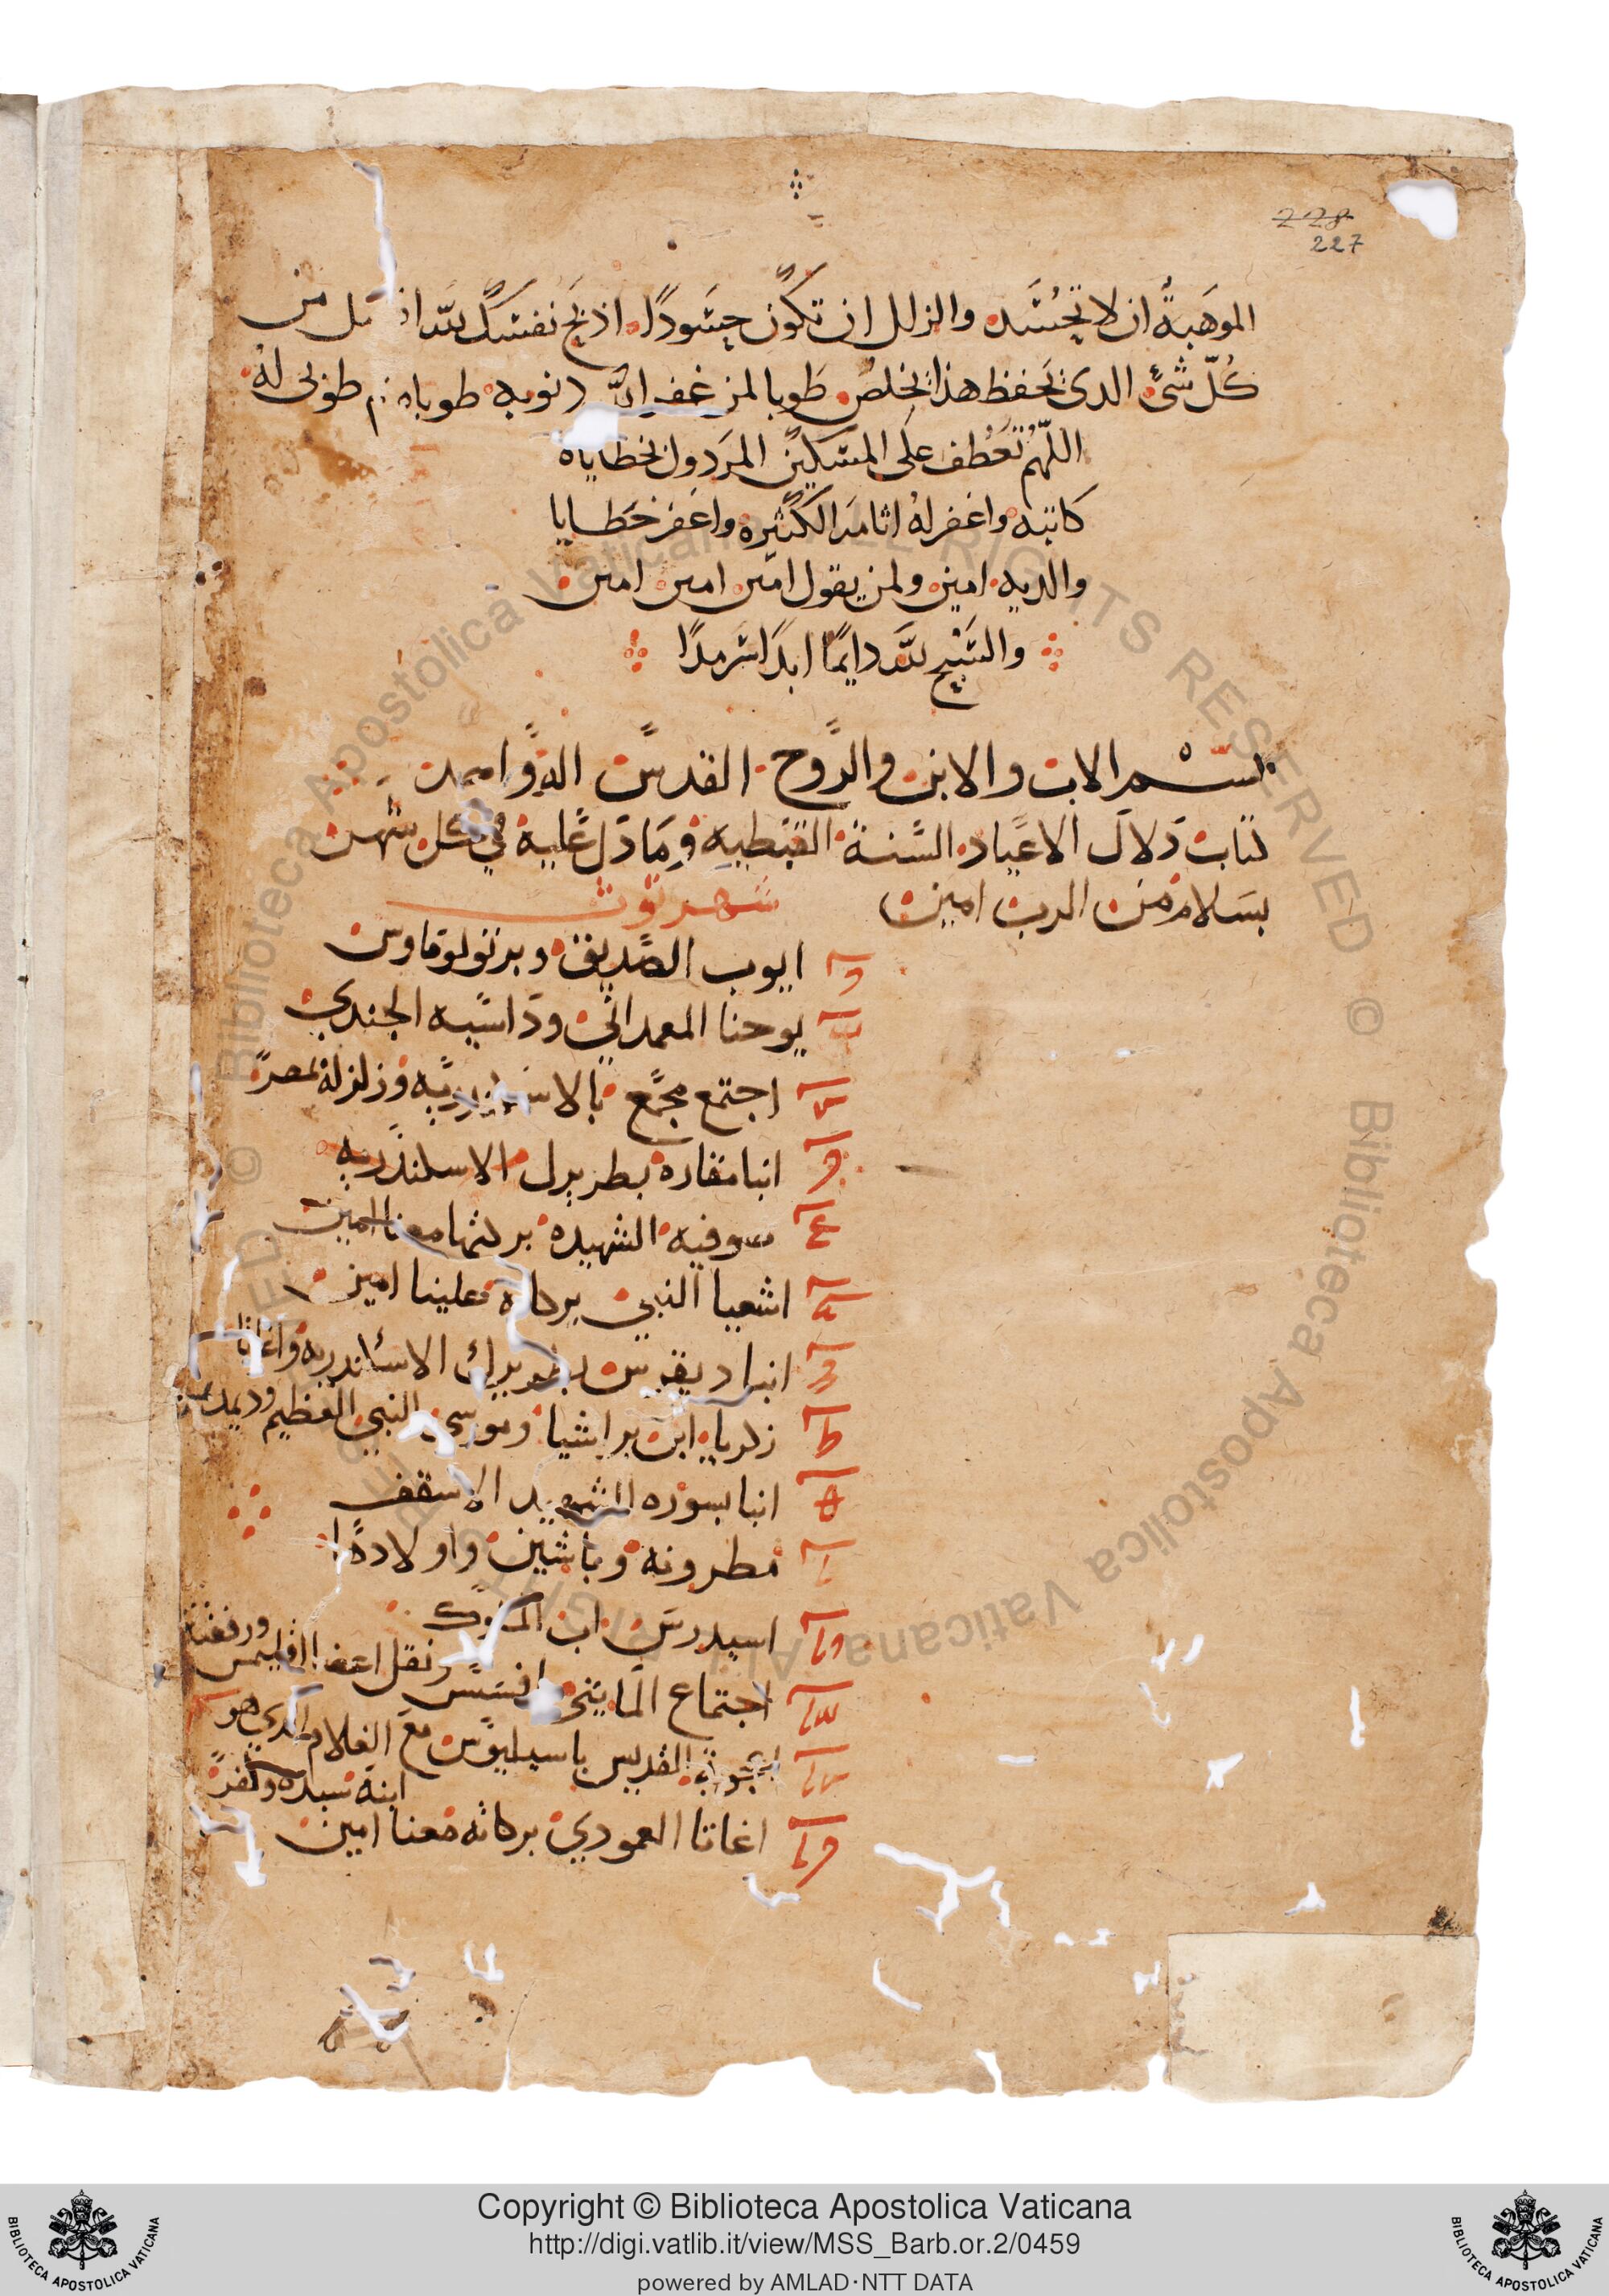 228
227
الموهبة ان لا تحسد والزلل ان تكون حسودًا اذبح نفسك لله افضل من
كُلّ شئ الدى يحفظ هذا يخلص طوبا لمن غفر الله دنوبه طوباه ثم طوبى له
اللّهم تعطف على المسكين المردول بخطاياه
كاتبه واغفر له اثامه الكثيره واغفر خطايا
والديه امين ولمن يقول امين امين امين
والسّبح لله دايمًا ابدًا سرمدًا
بسم الاب والابن والروح القدس اله واحد
كتاب دلال الاعياد السنة القبطيه وما دل عليه في كل شهر
بسلام من الرب امين شهر توت
ايوب الصديق وبرتولوماوس
يوحنا المعمداني وداسيه الجندي
اجتمع مجمع بالاسكندريه وزلزله بمصر
انبا مقاره بطريرك الاسكندريه
صوفيه الشهيده بركتها معنا امين
اشعيا النبي بركاته علينا امين
انبا ديقرس بطريرك الاسكندريه واغاتا
زكريا ابن براشيا وموسى النبي العظيم
انبا بسوره الشهيد الاسقف
مطرونه وباشين واولادها
اسيدرس
ونقل اعضا اقليمس ورفقته
اجتماع المايتى بافسس
القديس باسيليوس مع الغلام الدي هو
ابنة سيده وكفر
اغاتا العمودي بركاته معنا امين
Copyright © Biblioteca Apostolica Vaticana
http://digi.vatlib.it/view/MSS_Barb.or.2/0459
powered by AMLAD·NTT DATA
BIBLIOTECA APOSTOLICA VATICANA
BIBLIOTECA APOSTOLICA VATICANA